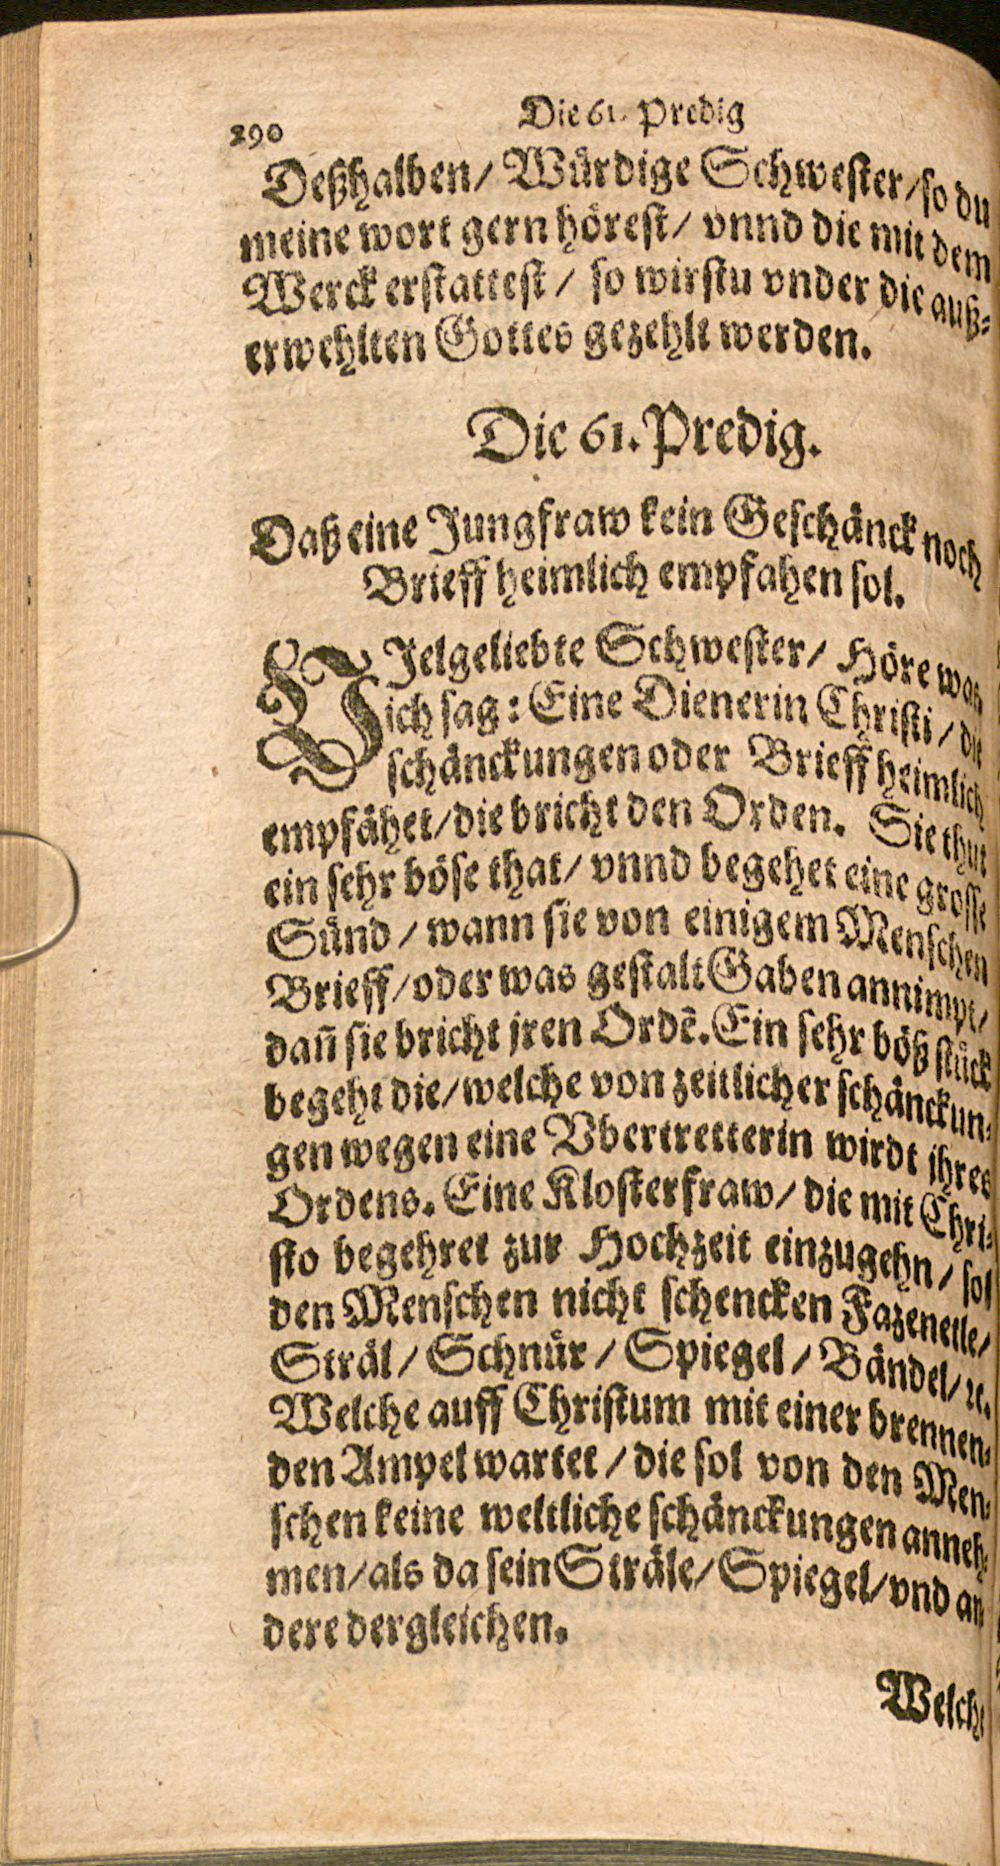 290
Die 61. Predig
Deßhalben/ Würdige Schwester/so du
meine wort gern hörest/ vnnd die mit dem
Werck erstattest / so wirstu vnder die auß-
erwehlten Gottes gezehlt werden.
Die 61. Predig.
Daß eine Jungfraw kein Geschänck noch
Brieff heimlich empfahen sol.
VJelgeliebte Schwester/ Höre was
ich sag: Eine Dienerin Christi / die
schänckungen oder Brieff heimlich
empfähet/die bricht den Orden. Sie thut
ein sehr böse that/ vnnd begehet eine grosse
Sünd / wann sie von einigem Menschen
Brieff/oder was gestalt Gaben annimpt/
dañ sie bricht jren Ordẽ. Ein sehr böß stück
begeht die/welche von zeitlicher schänckun-
gen wegen eine Vbertretterin wirdt ihres
Ordens. Eine Klosterfraw/ die mit Chri-
sto begehret zur Hochzeit einzugehn / sol
den Menschen nicht schencken Fazenetle/
Sträl/ Schnür / Spiegel / Bändel/ ꝛc.
Welche auff Christum mit einer brennen-
den Ampel wartet / die sol von den Men-
schen keine weltliche schänckungen anneh-
men/als da sein Sträle/ Spiegel/vnd an
dere dergleichen.
Welche